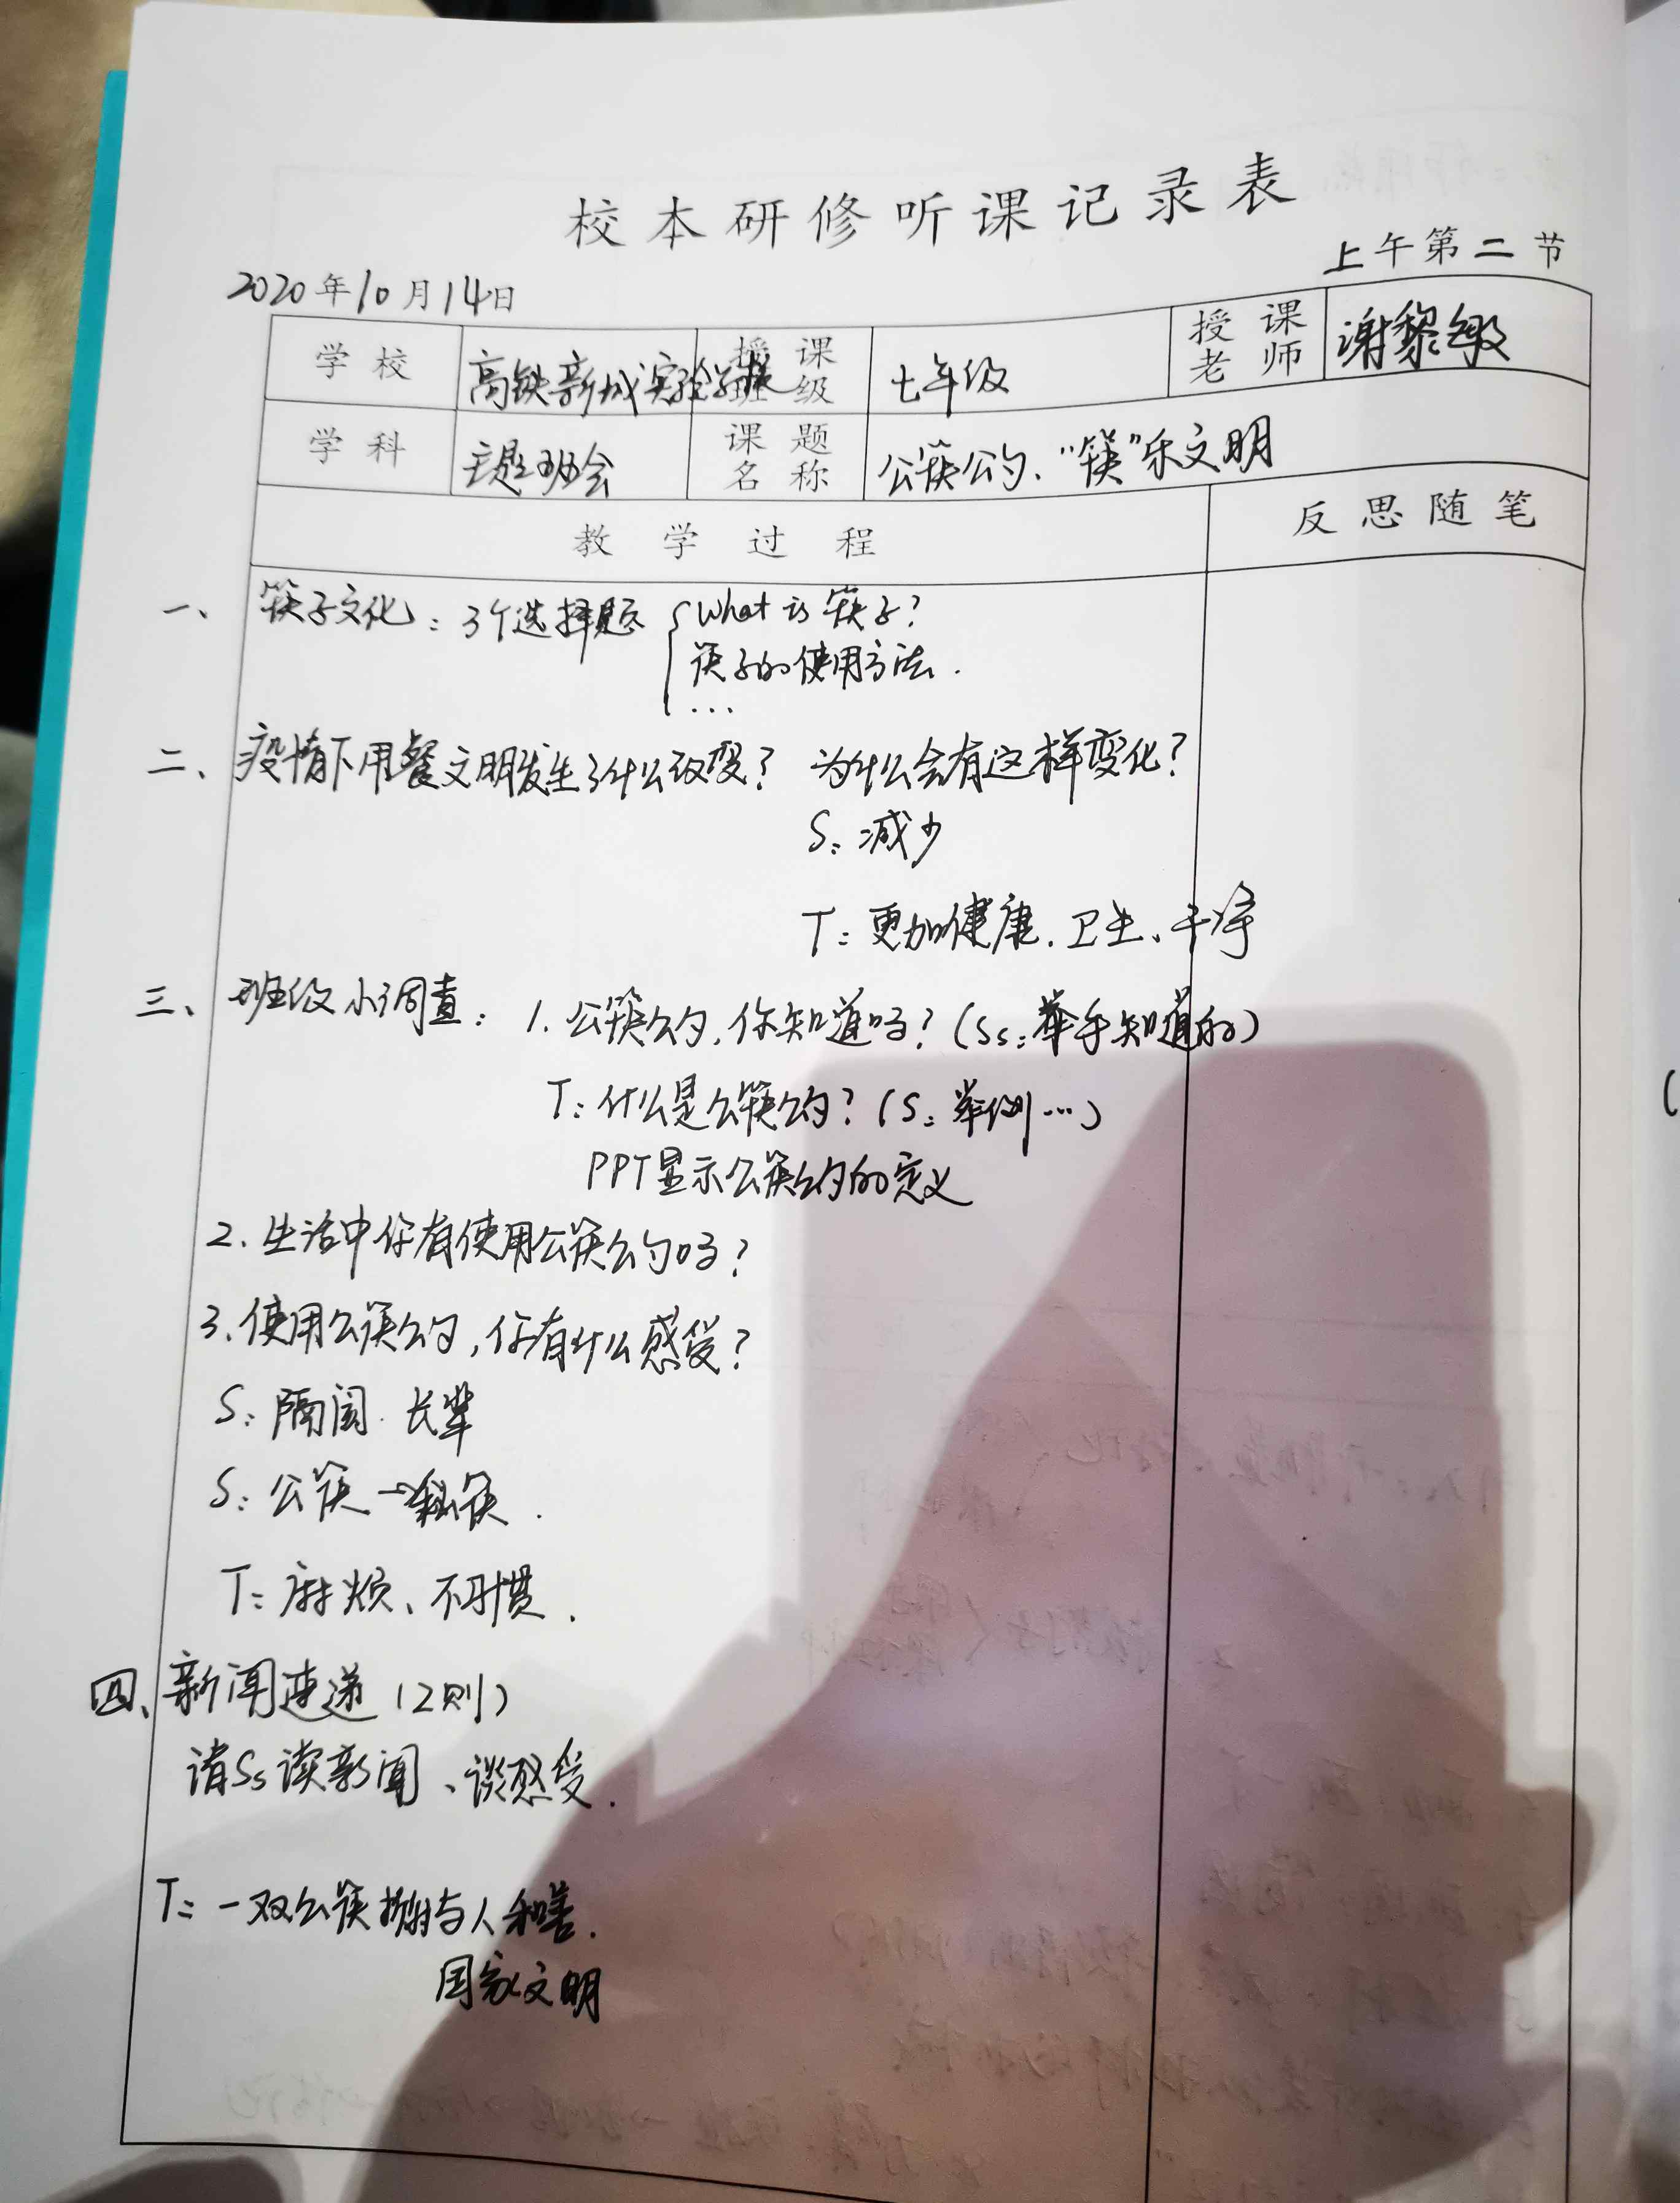 校本研修听课记录表
2020年10月14日
上午第二节
学校 高铁新城实验学校 授课班级 七年级 授课老师 谢黎敏
学科 主题班会 课题名称 公筷公勺、“筷”乐文明
教学过程 反思随笔
一、筷子文化：3个选择题 { What is 筷子？
筷子的使用方法.
...
二、疫情下用餐文明发生了什么改变？ 为什么会有这样变化？
S：减少
T：更加健康、卫生、干净
三、班级小调查： 1. 公筷公勺，你知道吗？（Ss：举手知道的）
T：什么是公筷公勺？（S：举例…）
PPT显示公筷公勺的定义
2. 生活中你有使用公筷公勺吗？
3. 使用公筷公勺，你有什么感受？
S：隔阂. 长辈
S：公筷→私筷.
T：麻烦、不习惯.
四、新闻速递（2则）
请Ss读新闻、谈感受.
T：一双公筷 与人和善.
国家文明